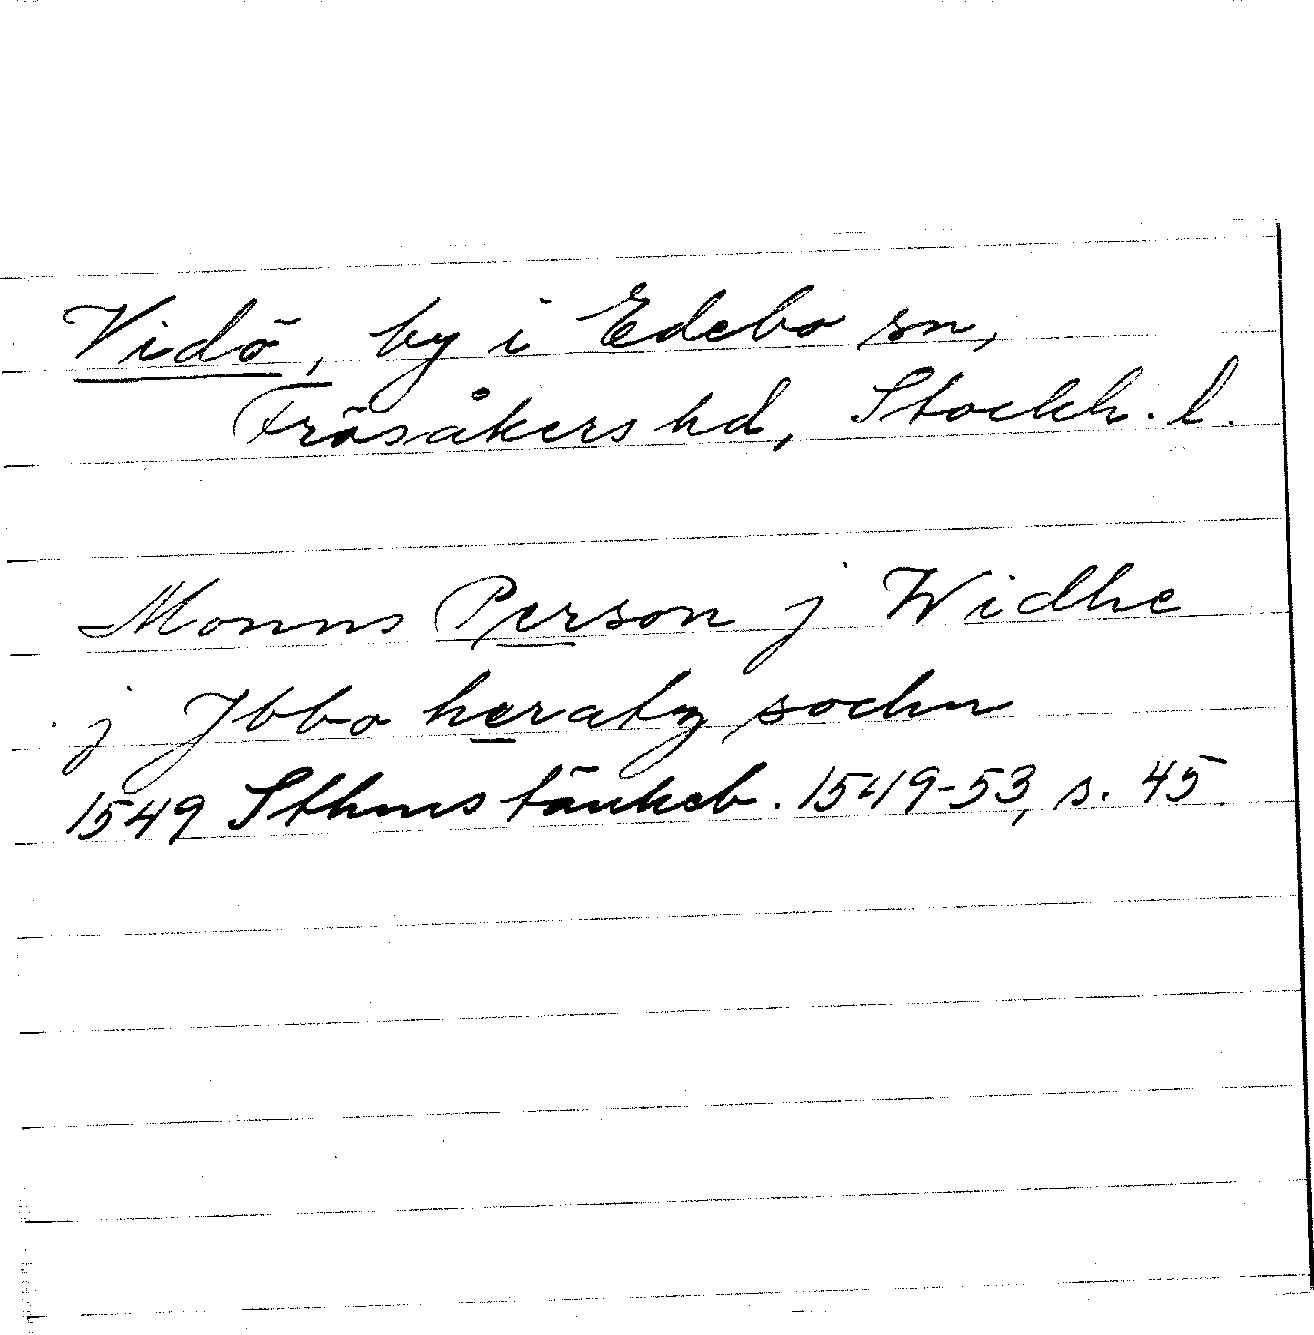 Vidö, by i Edebo sn,
Frösåkers hd, Stockh. l.
Monns Person j Widhe
j Jbbo heratz sochn
1549 Sthms tänkeb. 1549-53, s. 45